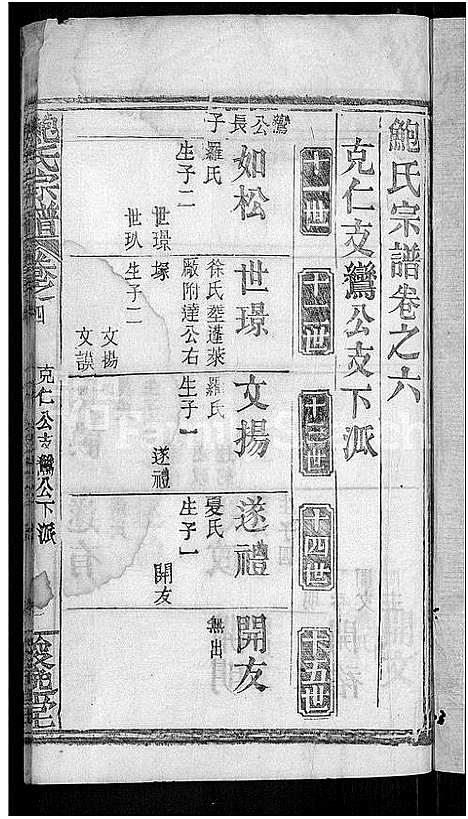 鮑氏宗譜卷之六
克仁支鸞公支下派
十一世
十二世
十三世
十四世
十五世
鸞公長子
如松
羅氏
生子二
世璟
世玖
世璟
徐氏葬蓬萊
厰附達公右
塚
生子二
文揚
文謨
文揚
羅氏
生子一
遂禮
遂禮
夏氏
生子一
開友
開友
無出
鮑氏宗譜
卷之四
克仁公支鸞公下派